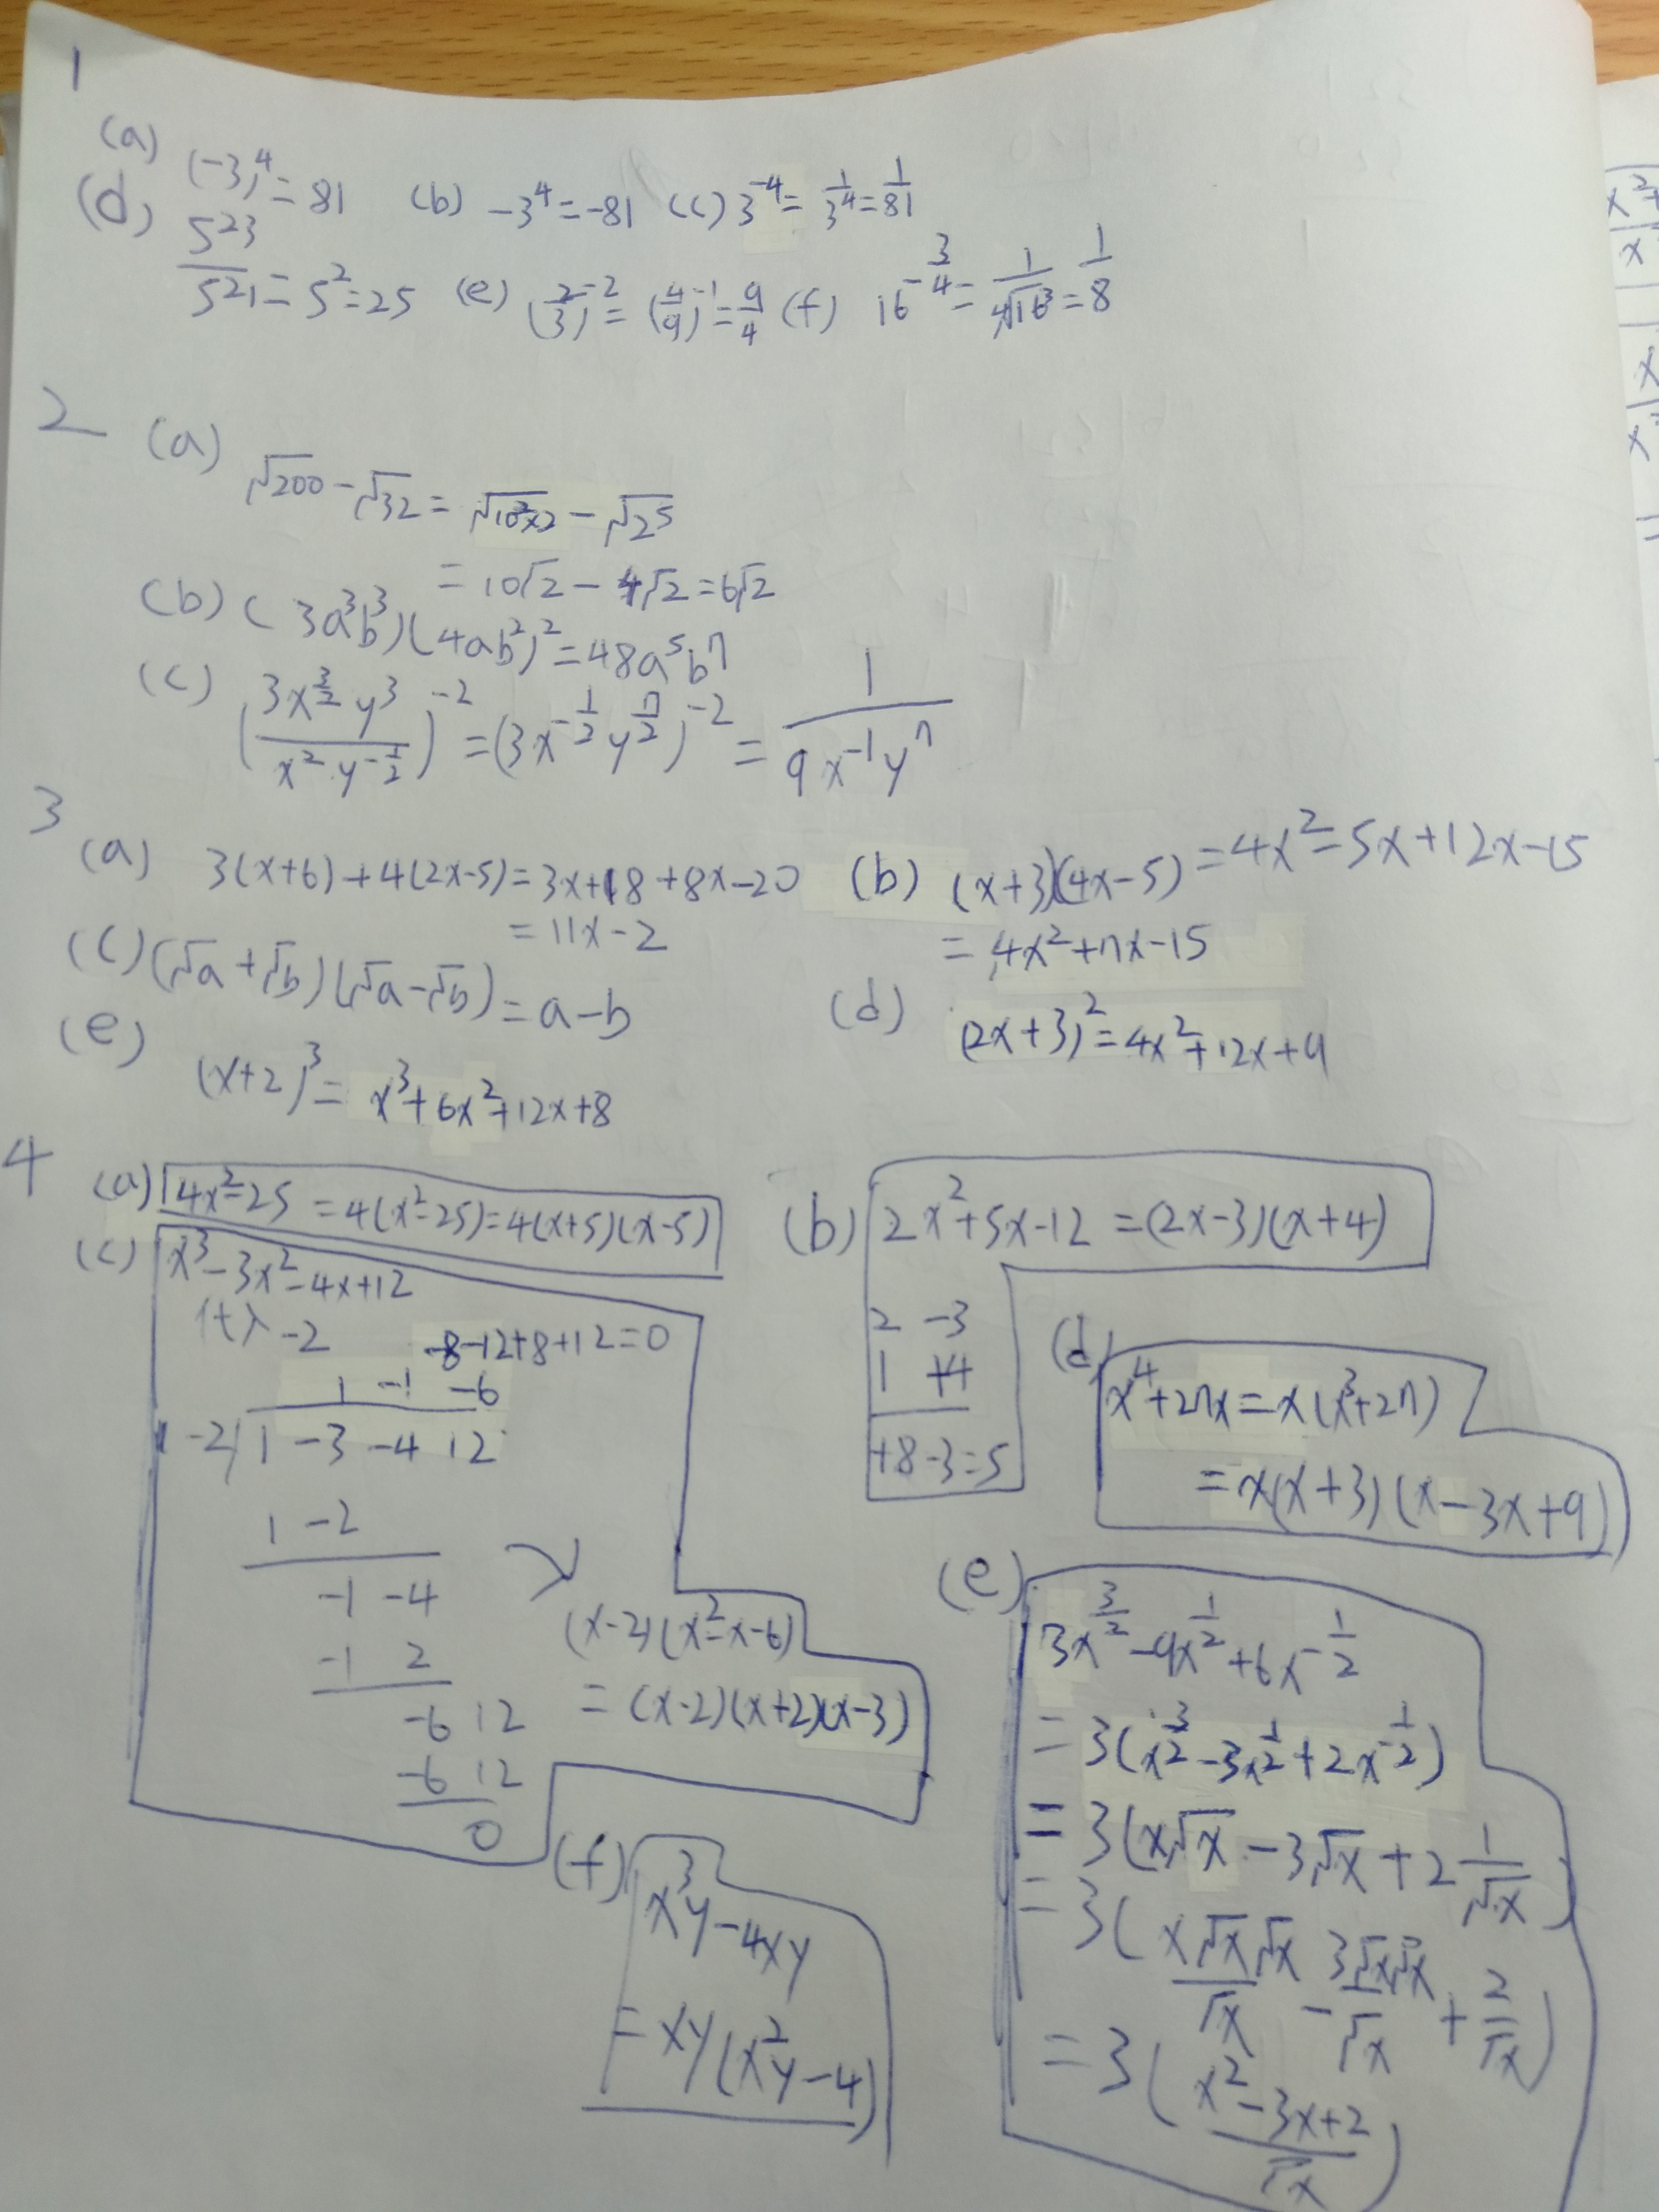 1
(a) (-3)^4 = 81 (b) -3^4 = -81 (c) 3^-4 = 1/3^4 = 1/81
(d) 5^23/5^21 = 5^2 = 25 (e) (2/3)^-2 = (4/9)^-1 = 9/4 (f) 16^-3/4 = 1/∜16^3 = 1/8
2
(a) √200 - √32 = √10^2×2 - √2^5
= 10√2 - 4√2 = 6√2
(b) (3a^3b^3)(4ab^2)^2 = 48a^5b^7
(c) (3x^3/2 y^3 / x^2 y^-1/2)^-2 = (3x^-1/2 y^7/2)^-2 = 1/9x^-1y^7
3
(a) 3(x+6)+4(2x-5) = 3x+18+8x-20 (b) (x+3)(4x-5) = 4x^2-5x+12x-15
= 11x-2
= 4x^2+7x-15
(c) (√a+√b)(√a-√b) = a-b
(d) (2x+3)^2 = 4x^2+12x+9
(e) (x+2)^3 = x^3+6x^2+12x+8
4
(a) 4x^2-25 = 4(x^2-25) = 4(x+5)(x-5)
(b) 2x^2+5x-12 = (2x-3)(x+4)
2 -3
1 +4
+8-3=5
(c) x^3-3x^2-4x+12
-2 -8-12+8+12=0
1 -1 -6
-2) 1 -3 -4 12
1 -2
-1 -4
-1 2
-6 12
-6 12
0
(x-2)(x^2-x-6)
= (x-2)(x+2)(x-3)
(d) x^4+27x = x(x^3+27)
= x(x+3)(x-3x+9)
(e) 3x^3/2-9x^1/2+6x^-1/2
= 3(x^3/2-3x^1/2+2x^-1/2)
= 3(x√x-3√x+2 1/√x)
= 3(x√x√x/√x - 3√x√x/√x + 2/√x)
= 3(x^2-3x+2/√x)
(f) x^3y-4xy
= xy(x^2y-4)